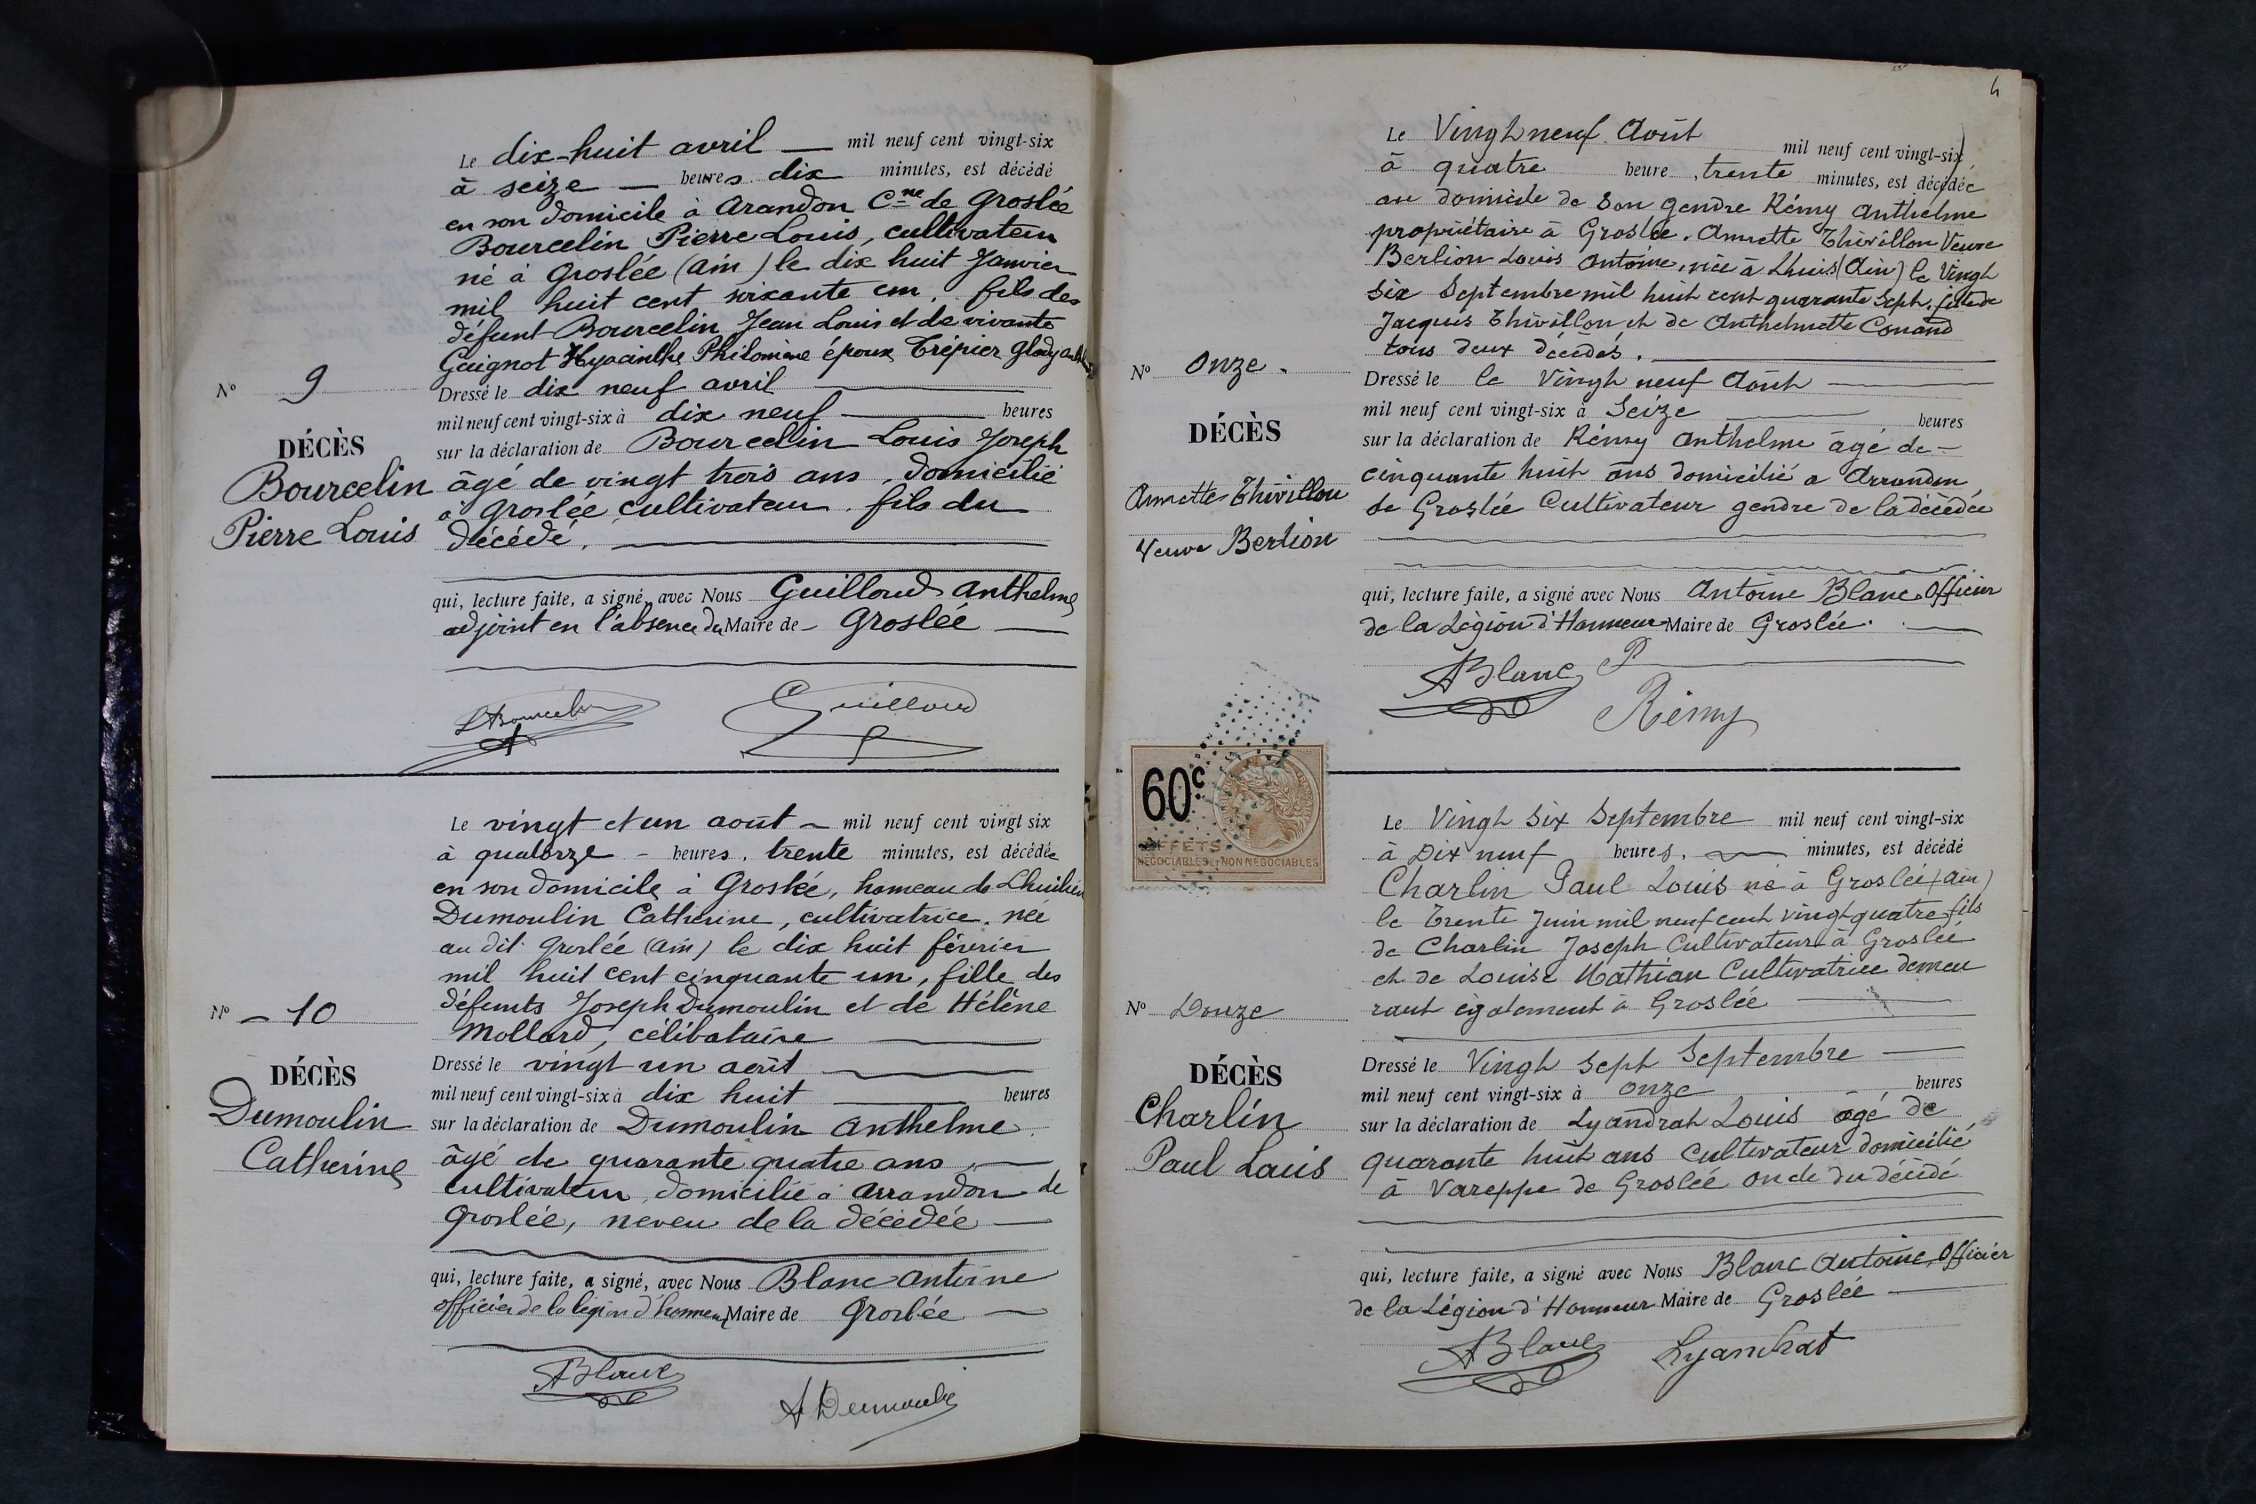 Le dix-huit avril — mil neuf cent vingt-six
à seize — heures dix minutes, est décédé
en son domicile à Arandon Cne de Groslée
Bourcelin Pierre Louis, cultivateur
né à Groslée (Ain) le dix huit Janvier
mil huit cent soixante un, fils des
défunt Bourcelin Jean Louis et de vivante
Guignot Hyacinthe Philomène époux Trépier
Dressé le dix neuf avril
mil neuf cent vingt-six à dix neuf heures
sur la déclaration de Bourcelin Louis Joseph
âgé de vingt trois ans, domicilié
à Groslée, cultivateur, fils du
décédé.
qui, lecture faite, a signé, avec Nous Guilloud Anthelme
adjoint en l'absence du Maire de Groslée
No 9
DÉCÈS
Bourcelin
Pierre Louis
LBourcelin
Guilloud
Le vingt et un août — mil neuf cent vingt six
à quatorze - heures, trente minutes, est décédée
en son domicile à Groslée, hameau de
Dumoulin Catherine, cultivatrice, née
au dit Groslée (Ain) le dix huit février
mil huit cent cinquante un, fille des
défunts Joseph Dumoulin et de Hélène
Mollard, célibataire
Dressé le vingt un août
mil neuf cent vingt-six à dix huit heures
sur la déclaration de Dumoulin Anthelme
âgé de quarante quatre ans,
cultivateur, domicilié à Arrandon de
Groslée, neveu de la décédée
qui, lecture faite, a signé, avec Nous Blanc Antoine
officier de la légion d'honneur, Maire de Groslée
No - 10
DÉCÈS
Dumoulin
Catherine
ABlanc
A Dumoulin
4
Le Vingt neuf Août mil neuf cent vingt-six
à quatre heure, trente minutes, est décédée
au domicile de Son gendre Rémy Anthelme
propriétaire à Groslée. Annette Thivillon Veuve
Berlion Louis Antoine, née à Lhuis (Ain) le Vingt
six Septembre mil huit cent quarante Sept. fille de
Jacques Thivillon et de Anthelmette Conand
tous deux décédés.
Dressé le le Vingt neuf Août
mil neuf cent vingt-six à Seize heures
sur la déclaration de Rémy Anthelme âgé de
cinquante huit ans domicilié a Arrandon
de Groslée Cultivateur gendre de la décédée
qui, lecture faite, a signé avec Nous Antoine Blanc, Officier
de la Légion d'Honneur Maire de Groslée.
No Onze.
DÉCÈS
Annette Thivillon
Veuve Berlion
ABlanc
Rémy
60c
EFFETS
NÉGOCIABLES ET NON NÉGOCIABLES
Le Vingt Six Septembre mil neuf cent vingt-six
à Dix neuf heures, minutes, est décédé
Charlin Paul Louis né à Groslée (Ain)
le Trente Juin mil neuf cent vingt quatre fils
de Charlin Joseph Cultivateur à Groslée
et de Louise Mathian Cultivatrice demeu
rant également à Groslée
Dressé le Vingt Sept Septembre
mil neuf cent vingt-six à onze heures
sur la déclaration de Lyandrat Louis âgé de
quarante huit ans Cultivateur domicilié
à Vareppe de Groslée oncle du décédé
qui, lecture faite, a signé avec Nous Blanc Antoine, Officier
de la Légion d'Honneur Maire de Groslée
No Douze
DÉCÈS
Charlin
Paul Louis
ABlanc
Lyandrat